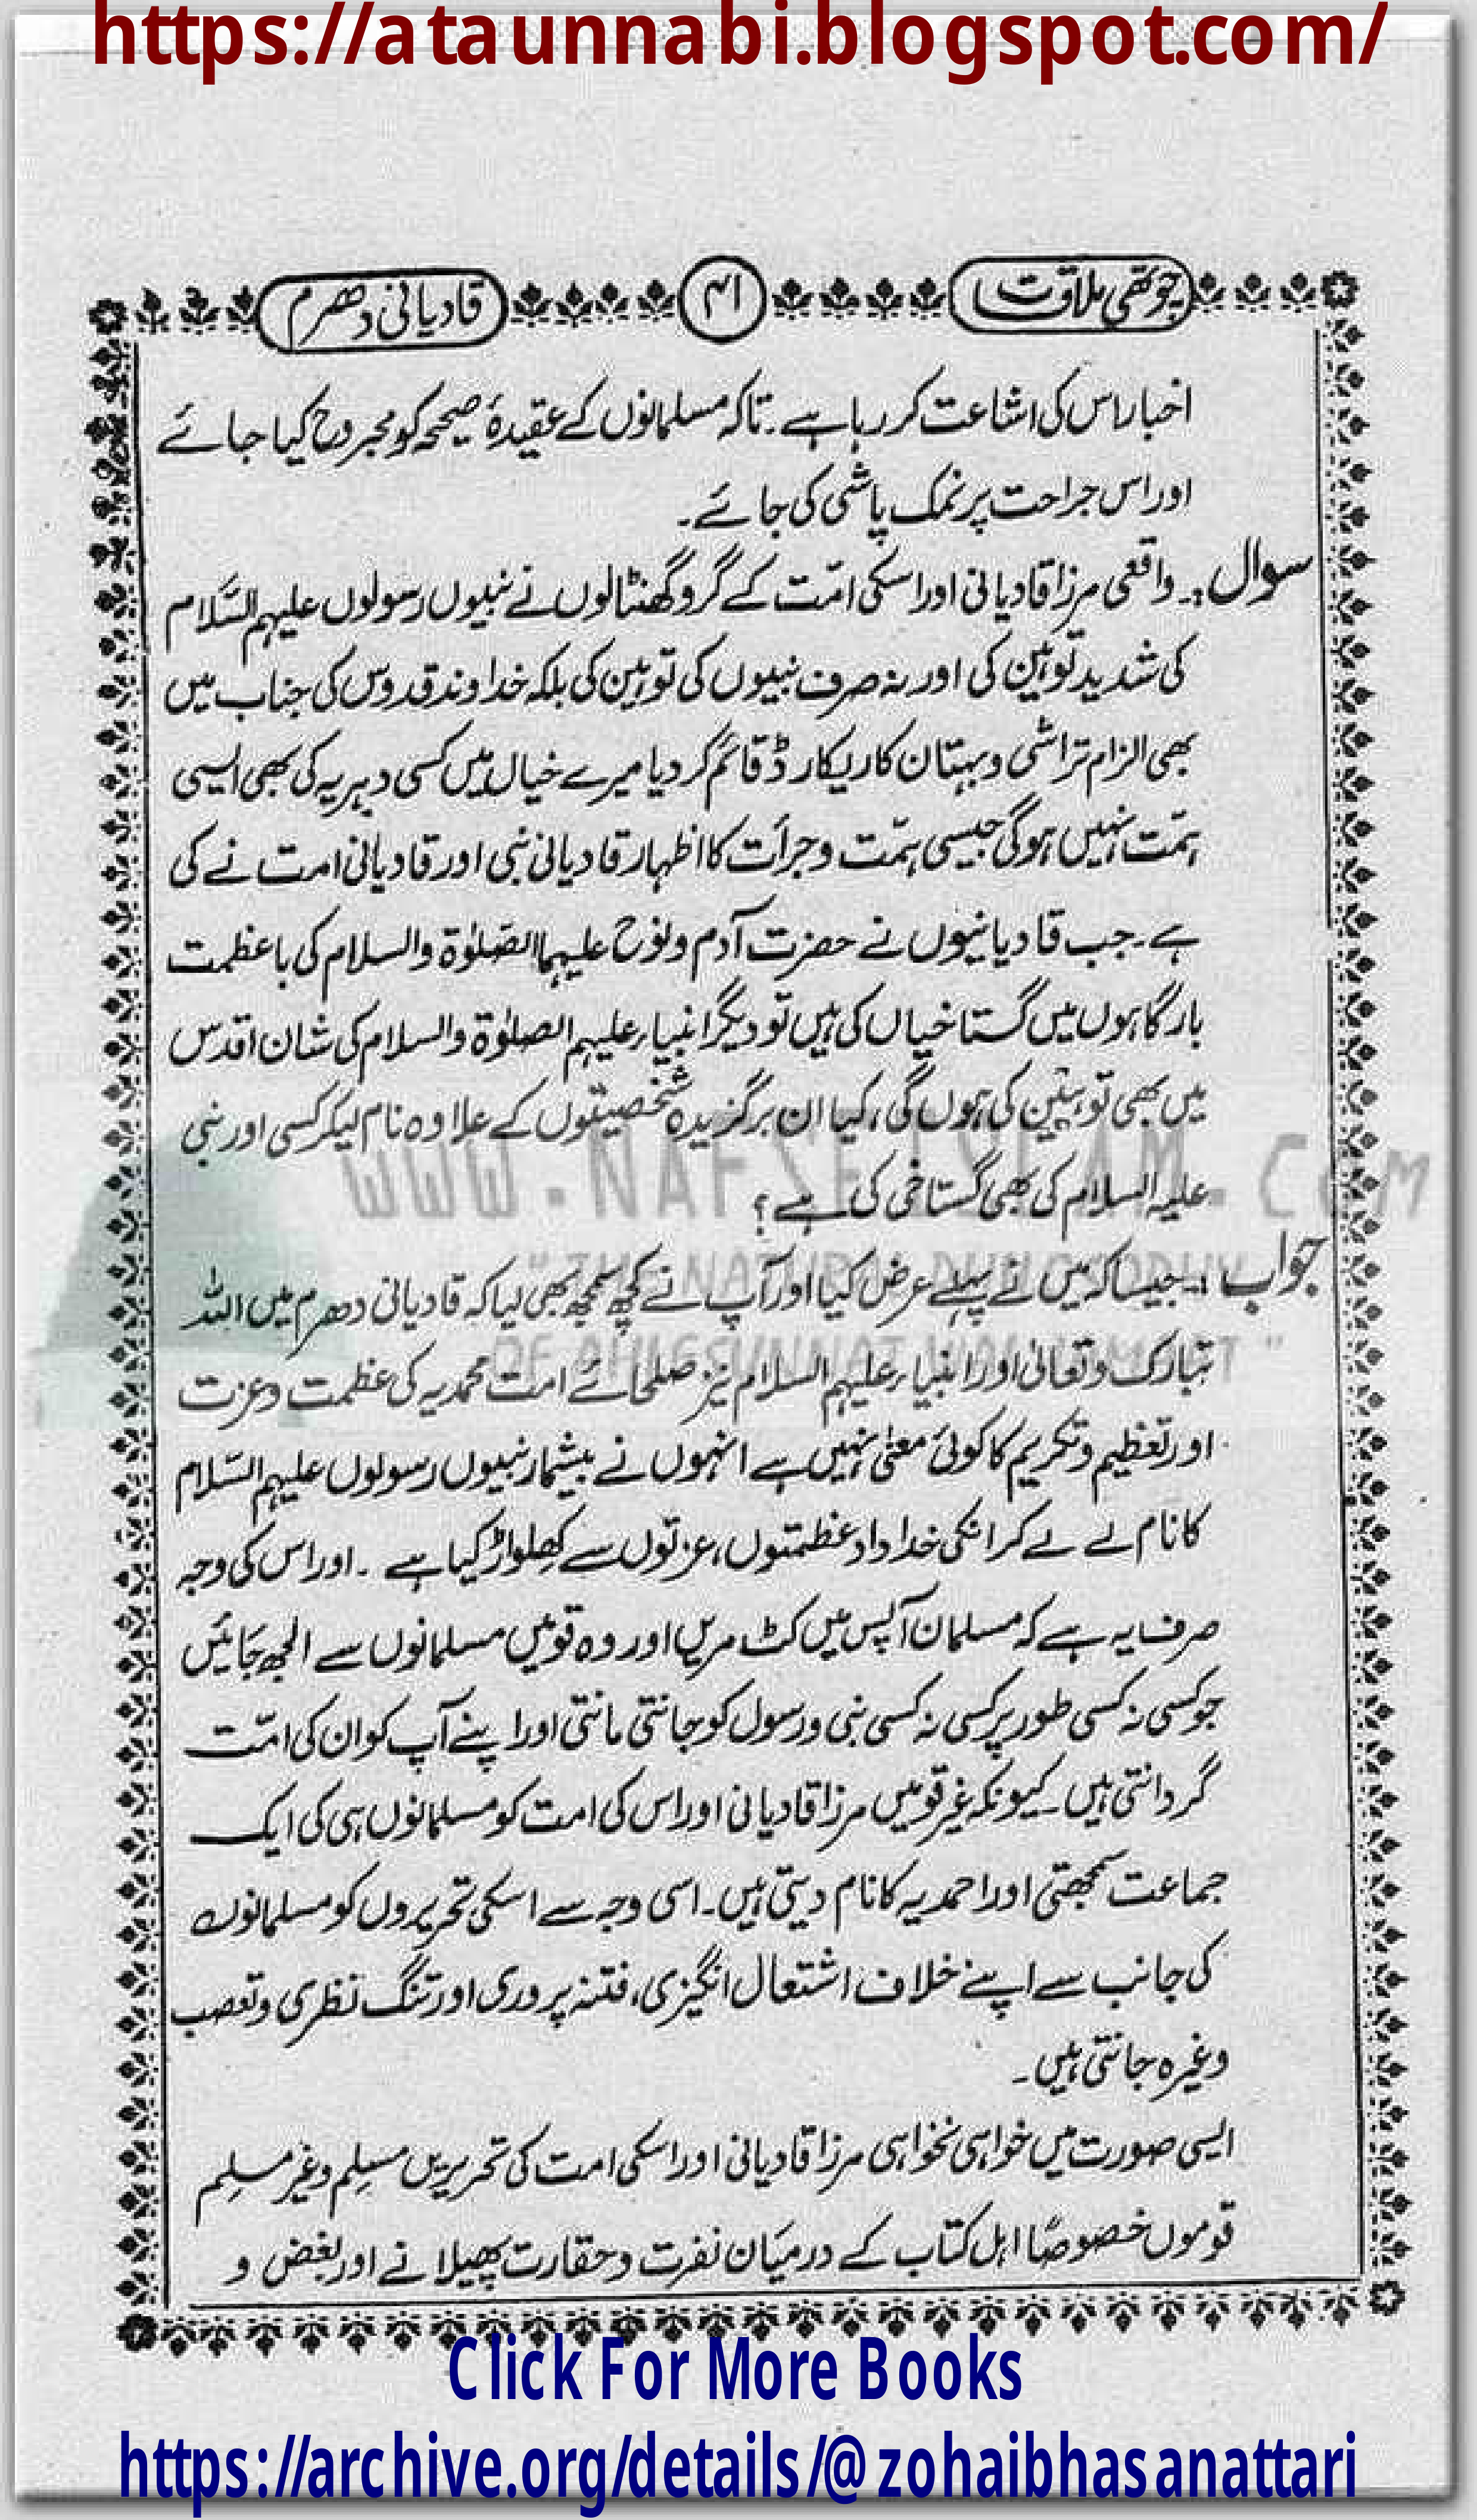 https://ataunnabi.blogspot.com/
چوتھی ملاقات
۴۱
قادیانی دھرم
اخبار اس کی اشاعت کر رہا ہے۔ تاکہ مسلمانوں کے عقیدۂ صحیحہ کو مجروح کیا جائے
اور اس جراحت پر نمک پاشی کی جائے۔
سوال:۔ واقعی مرزا قادیانی اور اسکی امّت کے گرو گھنٹالوں نے نبیوں رسولوں علیہم السَّلام
کی شدید توہین کی اور نہ صرف نبیوں کی توہین کی بلکہ خداوند قدوس کی جناب میں
بھی الزام تراشی و بہتان کا ریکارڈ قائم کر دیا میرے خیال میں کسی دہریہ کی بھی ایسی
ہمّت نہیں ہوگی جیسی ہمّت و جرأت کا اظہار قادیانی نبی اور قادیانی امت نے کی
ہے۔ جب قادیانیوں نے حضرت آدم و نوح علیہما الصّلوٰۃ والسلام کی باعظمت
بارگاہوں میں گستاخیاں کی ہیں تو دیگر انبیاء علیہم الصلوٰۃ والسلام کی شان اقدس
میں بھی توہین کی ہوں گی، کیا ان برگزیدہ شخصیتوں کے علاوہ نام لیکر کسی اور نبی
علیہ السلام کی بھی گستاخی کی ہے؟
WWW.NAFSEISLAM.COM
جواب:۔ جیسا کہ میں نے پہلے عرض کیا اور آپ نے کچھ سمجھ بھی لیا کہ قادیانی دھرم میں اللہ
"THE NATURAL PHILOSOPHY
تبارک و تعالیٰ اور انبیاء علیہم السلام نیز صلحائے امت محمدیہ کی عظمت و عزت
OF AHLESUNNAT WAL JAMAAT"
اور تعظیم و تکریم کا کوئی معنیٰ نہیں ہے انہوں نے بیشمار نبیوں رسولوں علیہم السّلام
کا نام لے لے کر انکی خداداد عظمتوں، عزتوں سے کھلواڑ کیا ہے۔ اور اس کی وجہ
صرف یہ ہے کہ مسلمان آپس میں کٹ مریں اور وہ قومیں مسلمانوں سے الجھ جائیں
جو کسی نہ کسی طور پر کسی نہ کسی نبی و رسول کو جانتی مانتی اور اپنے آپ کو ان کی امّت
گردانتی ہیں۔ کیونکہ غیر قومیں مرزا قادیانی اور اس کی امت کو مسلمانوں ہی کی ایک
جماعت سمجھتی اور احمدیہ کا نام دیتی ہیں۔ اسی وجہ سے اسکی تحریروں کو مسلمانوں
کی جانب سے اپنے خلاف اشتعال انگیزی، فتنہ پروری اور تنگ نظری و تعصب
وغیرہ جانتی ہیں۔
ایسی صورت میں خواہی نخواہی مرزا قادیانی اور اسکی امت کی تحریریں مسلِم و غیر مسلِم
قوموں خصوصًا اہل کتاب کے درمیَان نفرت و حقارت پھیلانے اور بغض و
Click For More Books
https://archive.org/details/@zohaibhasanattari